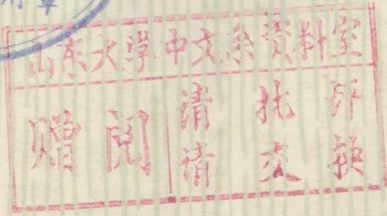 山东大学中文系资料室
赠阅
请批评
请交换